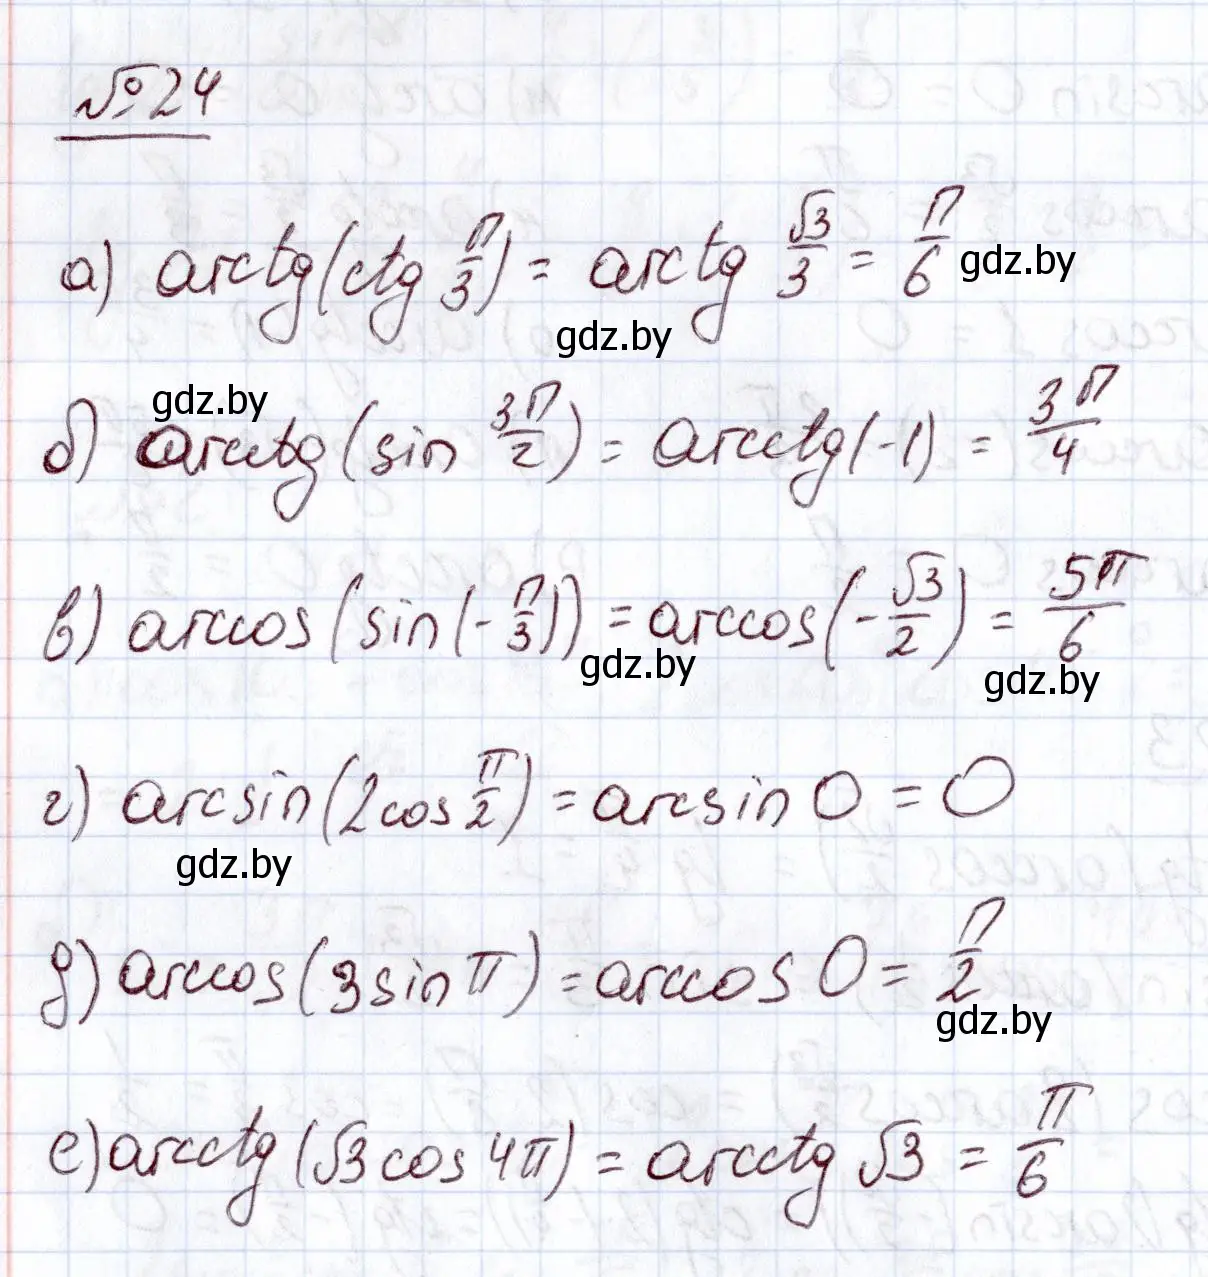 №24
а) arctg(ctg π/3) = arctg √3/3 = π/6
gdz.by
gdz.by
gdz.by
б) arcctg(sin 3π/2) = arcctg(-1) = 3π/4
в) arccos(sin(-π/3)) = arccos(-√3/2) = 5π/6
gdz.by
gdz.by
г) arcsin(2cos π/2) = arcsin 0 = 0
gdz.by
д) arccos(3sin π) = arccos 0 = π/2
gdz.by
е) arcctg(√3 cos 4π) = arcctg √3 = π/6